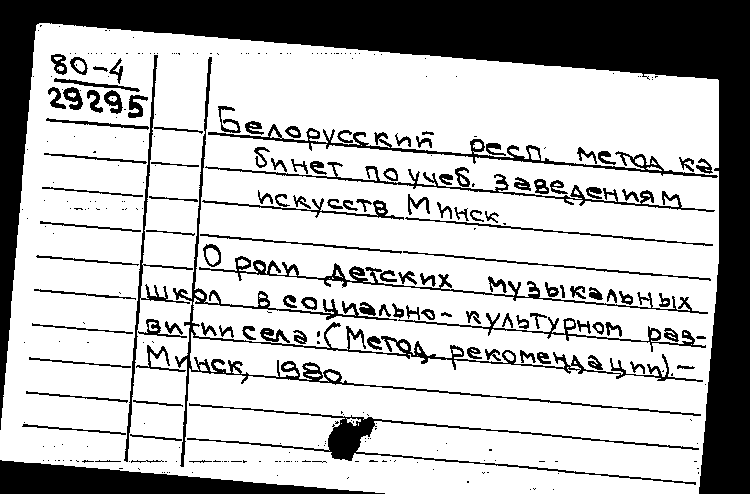 80-4
29295
Белорусский респ. метод. ка-
бинет по учеб. заведениям
искусств. Минск.
О роли детских музыкальных
школ в социально-культурном раз-
витии села: (Метод. рекомендации).-
Минск, 1980.